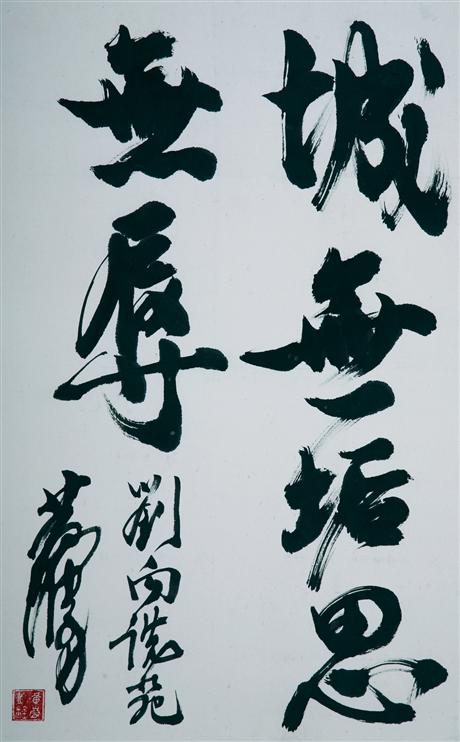 城無垢思
無辱
劉向說苑